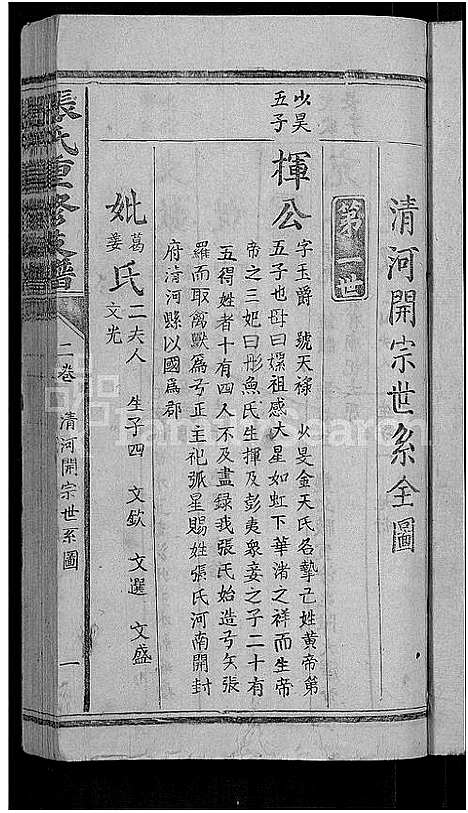 清河開宗世系全圖
第一世
少昊
五子
揮公
字玉爵 號天祿 少旻金天氏名摯己姓黄帝第
五子也母曰嫘祖感大星如虹下華渚之祥而生帝
帝之三妃曰彤魚氏生揮及彭夷衆妾之子二十有
五得姓者十有四人不及盡録我張氏始造弓矢張
羅而取禽獸為弓正主祀弧星賜姓張氏河南開封
府清河縣以國為郡
妣 葛 姜 氏 二夫人 生子四 文欽 文選 文盛
文光
張氏重修支譜
二卷 清河開宗世系圖 一
FamilySearch